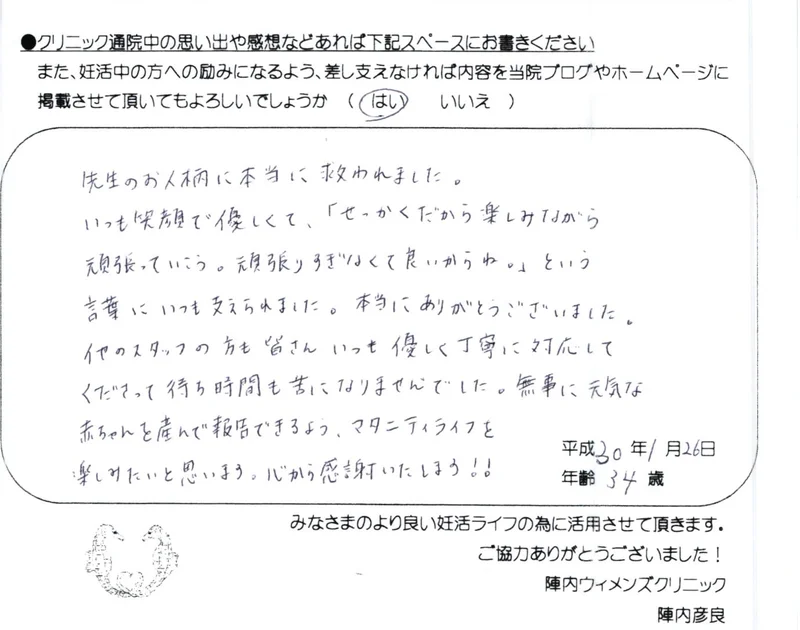 ●クリニック通院中の思い出や感想などあれば下記スペースにお書きください
また、妊活中の方への励みになるよう、差し支えなければ内容を当院ブログやホームページに
掲載させて頂いてもよろしいでしょうか （ はい　いいえ ）
先生のお人柄に本当に救われました。
いつも笑顔で優しくて、「せっかくだから楽しみながら
頑張っていこう。頑張りすぎなくて良いからね。」という
言葉にいつも支えられました。本当にありがとうございました。
他のスタッフの方も皆さんいつも優しく丁寧に対応して
くださって待ち時間も苦になりませんでした。無事に元気な
赤ちゃんを産んで報告できるよう、マタニティライフを
楽しみたいと思います。心から感謝いたします!!
平成30年1月26日
年齢 34 歳
みなさまのより良い妊活ライフの為に活用させて頂きます。
ご協力ありがとうございました！
陣内ウィメンズクリニック
陣内彦良